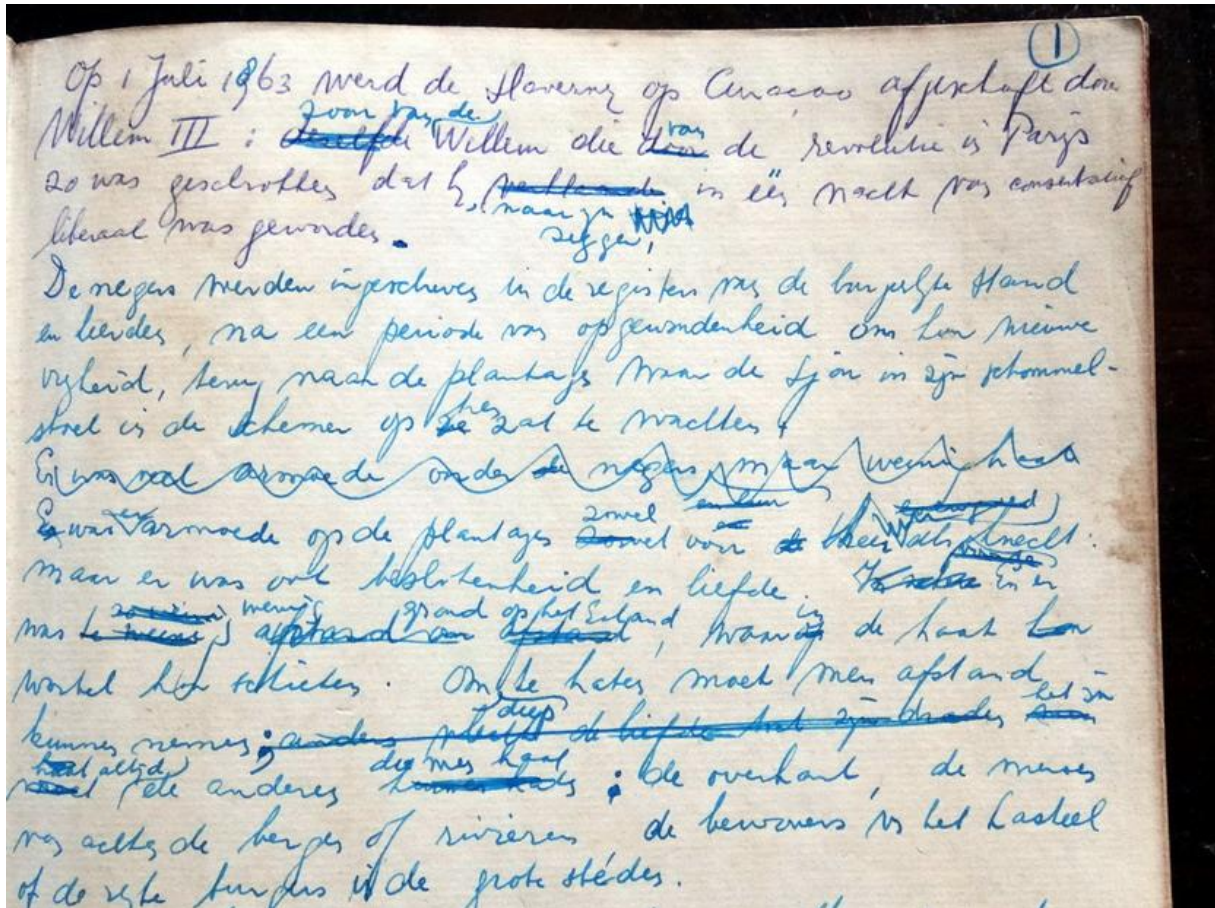 1
Op 1 Juli 1863 werd de slaverny op Curaçao afgeschaft door
zoon van de
Willem III ; dezelfde Willem die door van de revolutie in Parijs
zo was geschrokken dat hy in één nacht van conservatief
naar zijn
liberaal was geworden. zeggen,
De negers werden ingeschreven in de registers van de burgerlyke stand
en keerden, na een periode van opgewondenheid om hun nieuwe
vryheid, terug naar de plantages waar de sjon in zijn schommel-
stoel in de schemer op ze hen zat te wachten.
Er was veel armoede onder de negers, maar weinig haat
zowel en hun
Er was armoede op de plantages zowel voor heer als knecht:
maar er was ook beslotenheid en liefde. En er
weinig grond op het Eiland in
was te weinig afstand om afstand, waarin de haat kon
wortel kon schieten. Om te haten moet men afstand
diep het zijn
kunnen nemen; anders vlecht de liefde met zijn draden
altijd die men haat
de anderen ; de overkant, de mensen
van achter de bergen of rivieren de bewoners v/h het kasteel
of de ryke burgers in de grote steden.